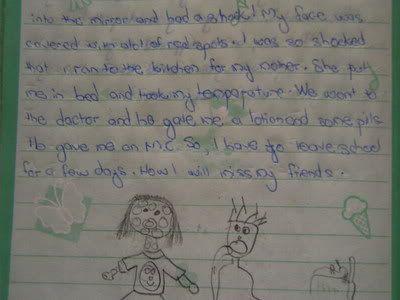 into the mirror and had a shock! My face was
covered with a lot of red spots. I was so shocked
that I ran to the kitchen for my mother. She put
me in bed and took my temperature. We went to
the doctor and he gave me a lotion and some pills
He gave me an M.C. So, I have to leave school
for a few days. How I will miss my friends.